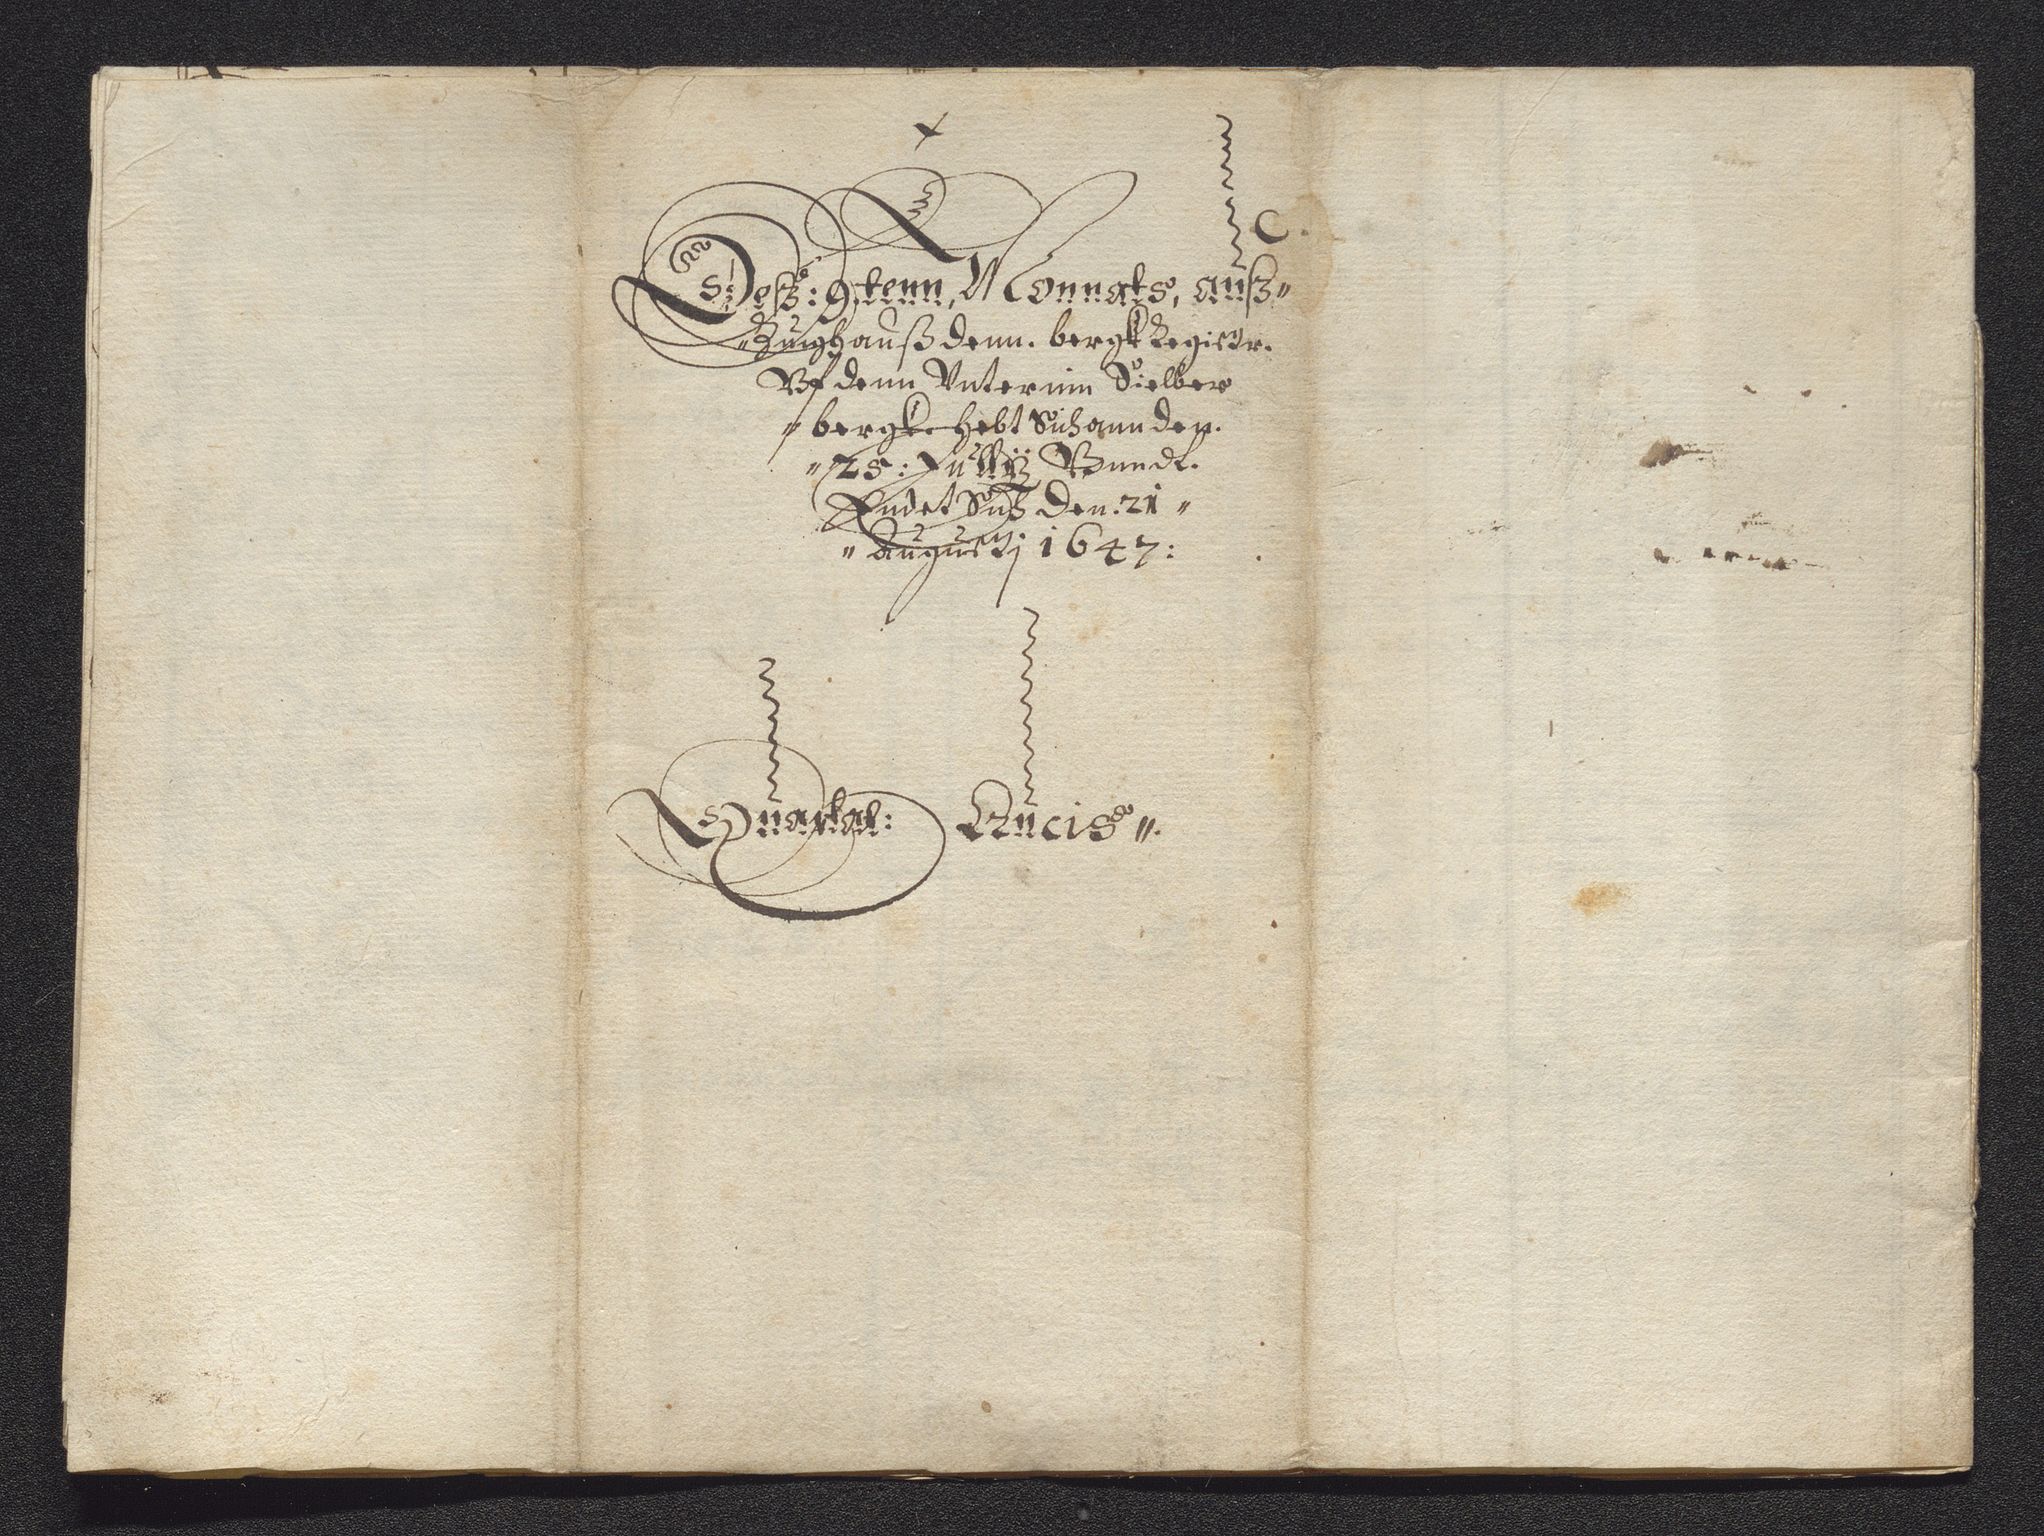 C.
Deß: 9tenn, Monnats, auß"
"Zugh auß denn. bergk Register.
Vf denn Vnterim Sielber
"bergk. hebt Sich ann den.
"25: Jullÿ Vnndt.
Endet Sich den. 21"
"Augustj 1647:
Quartal: Crucis".